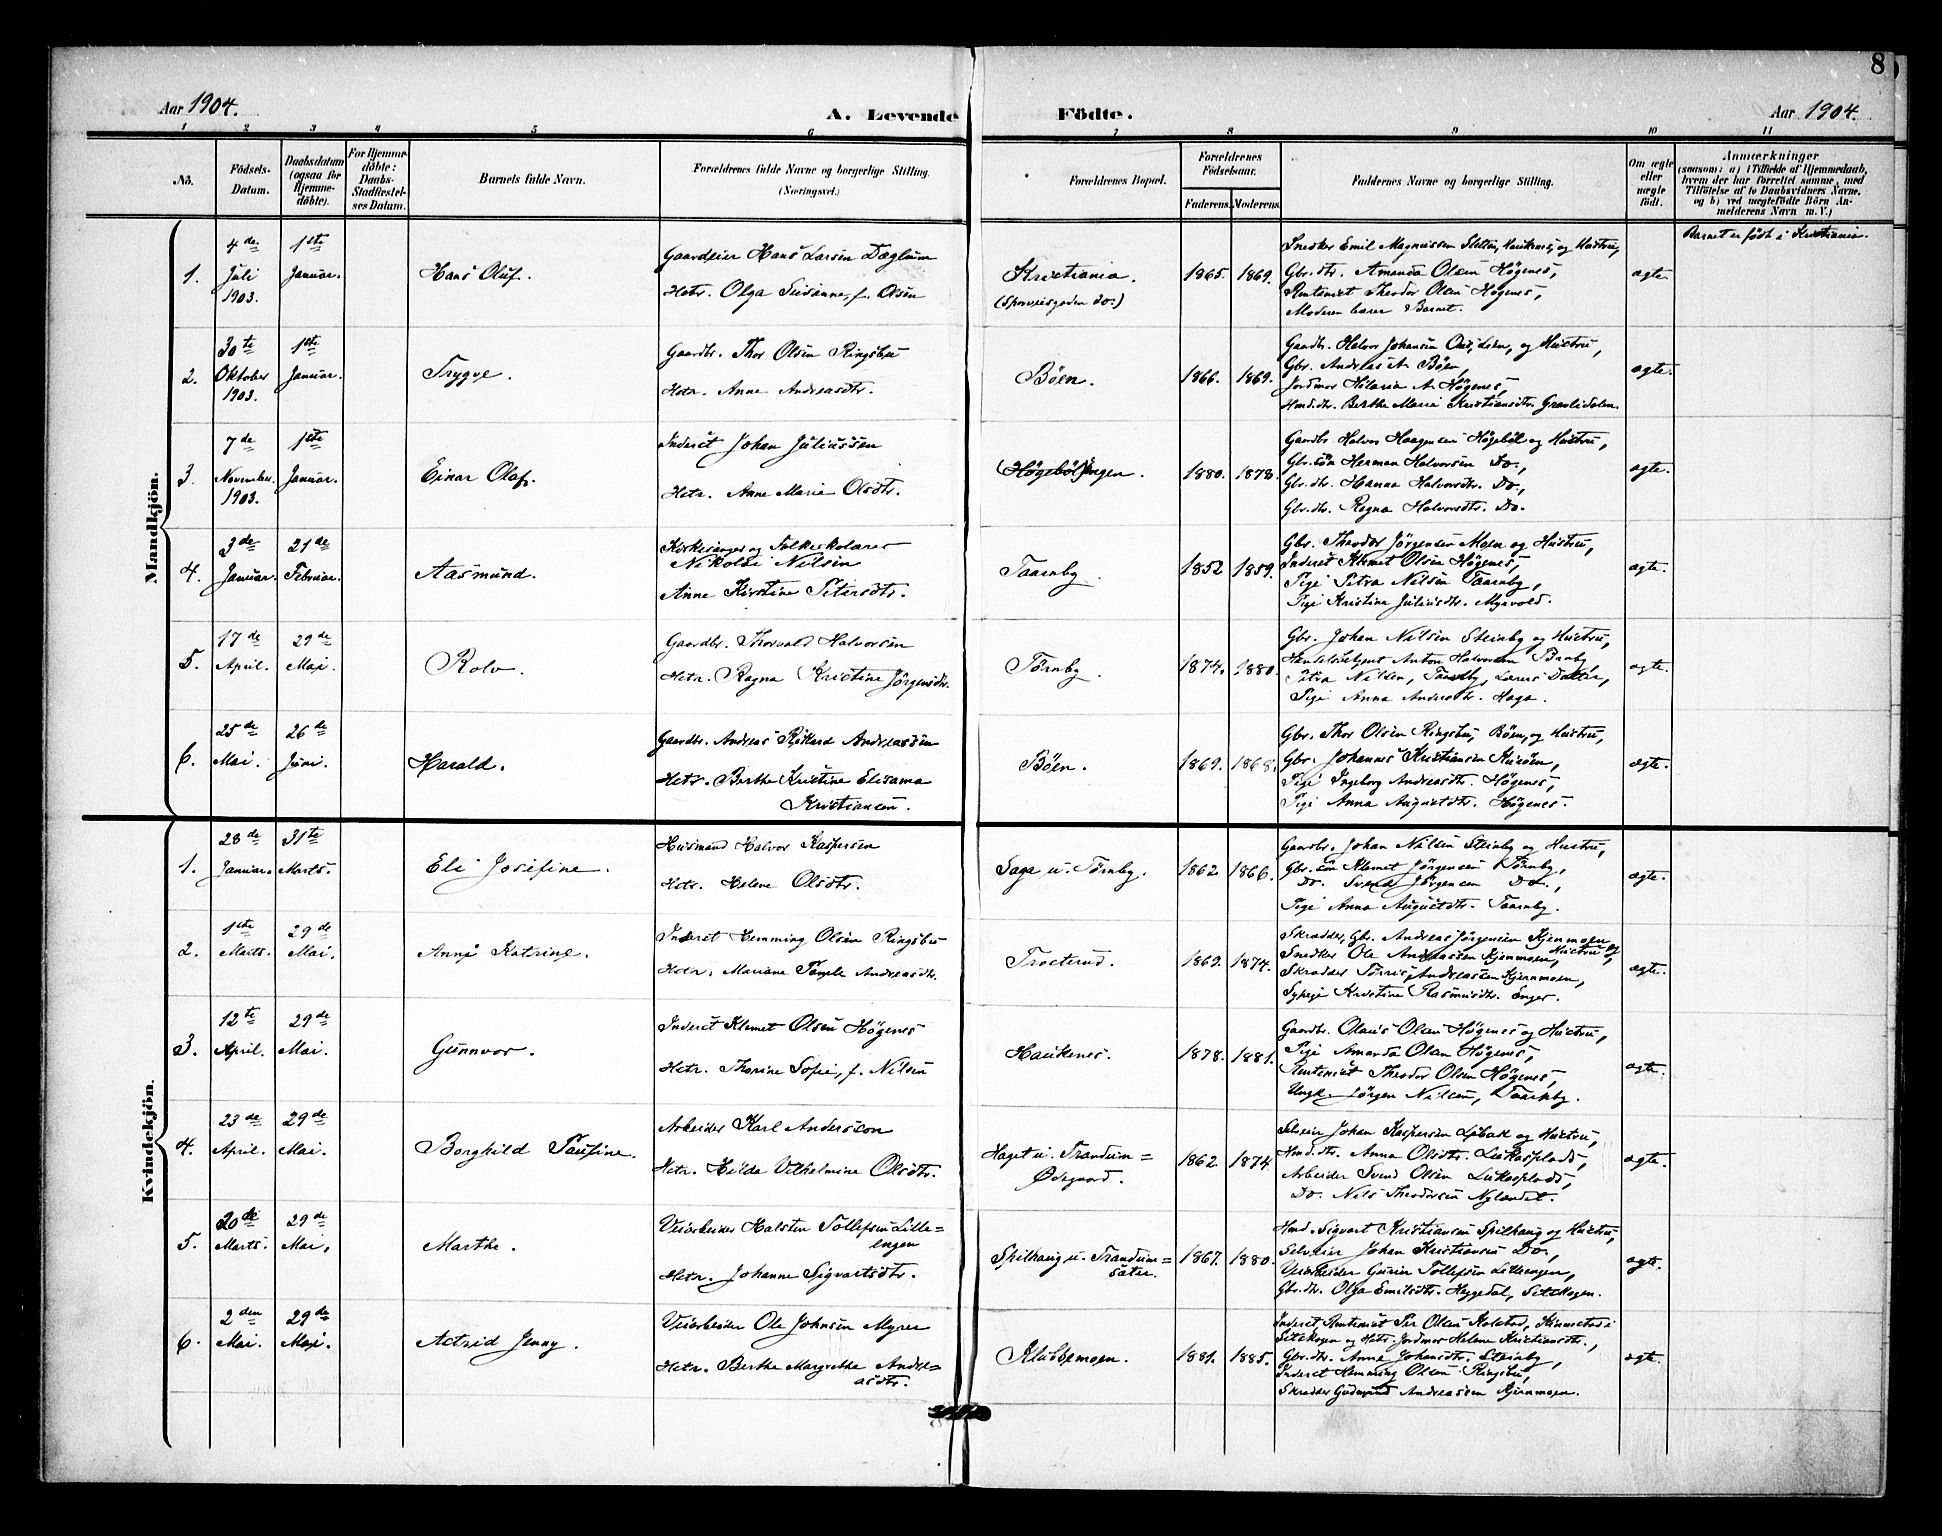 8
Aar 1904.
A. Levende Födte.
Aar 1904.
1 2 3 4 5 6 7 8 9 10 11
No.
Födsels-Datum.
Daabsdatum (ogsaa for Hjemme-döbte).
For Hjemme-döbte: Daabs-Stadfæstelses Datum.
Barnets fulde Navn.
Forældrenes fulde Navne og borgerlige Stilling. (Næringsvei.)
Forældrenes Bopæl.
Forældrenes Födselsaar.
Faderens. Moderens.
Faddernes Navne og borgerlige Stilling.
Om ægte eller uægte födt.
Anmærkninger
(saasom: a) i Tilfælde af Hjemmedaab, hvem der har forrettet samme, med Tilföielse af to Daabsvidners Navne, og b) ved uægtefödte Börn Anmelderens Navn m. V.)
Mandkjön.
1. 4de Juli 1903. 1ste Januar. Hans Oluf.
Gaardeier Hans Larsen Dæglum
Hstr. Olga Susanne, f. Olsen
Kristiania.
(Sporveisgaden do.)
1865. 1869.
Snedker Emil Magnussen Sletten, Haukenes, og Hustru,
Gbr.dtr. Amanda Olsen Høgenes,
Rentenist Theodor Olsen Høgenes,
Moderen bærer Barnet.
ægte.
Barnet er født i Kristiania.
2. 30te Oktober 1903. 1ste Januar. Trygve.
Gaardbr. Thor Olsen Ringsbu
Hstr. Anne Andreasdtr.
Bøen.
1866. 1869.
Gaardbr. Halvor Johansen Lien, og Hustru,
Gbr. Andreas A. Bøen,
Jordmor Hilaria A. Høgenes,
Hmd.dtr. Berthe Marie Kristiansdtr. Gravlidalen.
ægte.
3. 7de November 1903. 1ste Januar. Einar Olaf.
Inderst Johan Juliussen
Hstr. Anne Marie Olsdtr.
(Høgebøl)engen.
1880. 1878.
Gaardbr. Halvor Haagensen Høgebøl og Hustru,
Gbr.søn Herman Halvorsen Do.,
Gbr.dtr. Hanna Halvorsdtr. Do.,
Gbr.dtr. Ragna Halvorsdtr. Do.
ægte.
4. 3de Januar. 21de Februar. Aasmund.
Kirkesanger og Folkeskolærer
Nikolai Nilsen
Anne Kirstine Petersdtr.
Taarnby.
1852 1859.
Gbr. Theodor Jørgensen Moen og Hustru,
Inderst Klemet Olsen Høgenes,
Pige Petra Nilsen Taarnby,
Pige Kristine Juliusdtr. Myrvold.
ægte.
5. 17de April. 29de Mai. Rolv.
Gaardbr. Thorvald Halvorsen
Hstr. Ragna Kristine Jørgensdtr.
Tørnby.
1874. 1880.
Gbr. Johan Nilsen Steinby og Hustru,
Handelsbetjent Anton Halvorsen
Petra Nilsen, Taarnby, Lærers Datter,
Pige Anna Andersdtr. Haga.
ægte.
6. 25de Mai. 26de Juni. Harald.
Gaardbr. Andreas Rikard Andreassen
Hstr. Berthe Kristine Elisama
Kristiansen.
Bøen.
1869. 1868.
Gbr. Thor Olsen Ringsbu, Bøen, og Hustru,
Gbr. Johannes Kristiansen
Pige Ingeborg Andreasdtr. Høgenes,
Pige Anna Augustdtr. Høgenes.
ægte.
Kvindekjön.
1. 28de Januar. 31te Marts. Eli Josefine.
Husmand Halvor Kaspersen
Hstr. Helene Olsdtr.
Saga u. Tørnby.
1862 1866.
Gaardbr. Johan Nilsen Steinby og Hustru,
Gbr.søn Klemet Jørgensen Tørnby,
Do. Svend Jørgensen Do.,
Pige Anna Augustdtr. Taarnby.
ægte.
2. 1ste Marts. 29de Mai. Anne Katrine.
Inderst Hemming Olsen Ringsbu
Hstr. Mariane Andreasdtr.
Trosterud.
1869. 1874.
Skrædder, Gbr. Andreas Jørgensen Kjernmoen og Hustru,
Snedker Ole Andreassen Kjernmoen,
Skrædder Tørris Andreassen Kjernmoen,
Sypige Kristine Rasmusdtr. Enger.
ægte.
3. 12te April. 29de Mai. Gunnvor.
Inderst Klemet Olsen Høgenes
Hstr. Thorine Sofie, f. Nilsen
Haukenes.
1878. 1881.
Gaardbr. Olaus Olsen Høgenes og Hustru,
Pige Amanda Olsen Høgenes,
Rentenist Theodor Olsen Høgenes,
Ungk. Jørgen Nilsen, Taarnby.
ægte.
4. 23de April. 29de Mai. Borghild Paufine.
Arbeider Karl Andersson
Hstr. Hilda Vilhelmine Olsdtr.
Haget u. Trandum=
Ødegaard.
1862. 1874
Selveier Johan Kaspersen Libak og Hustru,
Hmd.dtr. Anna Olsdtr. Lukasplads,
Arbeider Svend Olsen Lukasplads,
Do. Nils Theodorsen Nylandet.
ægte.
5. 20de Marts. 29de Mai. Marthe.
Veiarbeider Halsten Tollefsen Lille=
engen
Hstr. Johanne Sigvartsdtr.
Spilhaug u. Trandum=
sæter.
1867. 1880.
Hmd. Sigvart Kristiansen Spilhaug og Hustru,
Selveier Johan Kristiansen Do.,
Veiarbeider Tollefsen Lilleengen,
Gbr.dtr. Olga Emilsdtr. Heggedal, Setskogen.
ægte.
6. 2den Mai. 29de Mai. Astrid Jenny.
Veiarbeider Ole Johnsen Myrer
Hstr. Berthe Margrethe Andre=
asdtr.
Klubbemoen.
1881. 1885.
Inderst, Rentenist Per Olsen Kolstad,
Setskogen og Hstr. Jordmor Helene Kristiansdtr.,
Gbr.dtr. Anne Johansdtr. Steinby,
Inderst Hemming Olsen Ringsbu,
Skrædder Gudmund Andreassen Kjernmoen.
ægte.